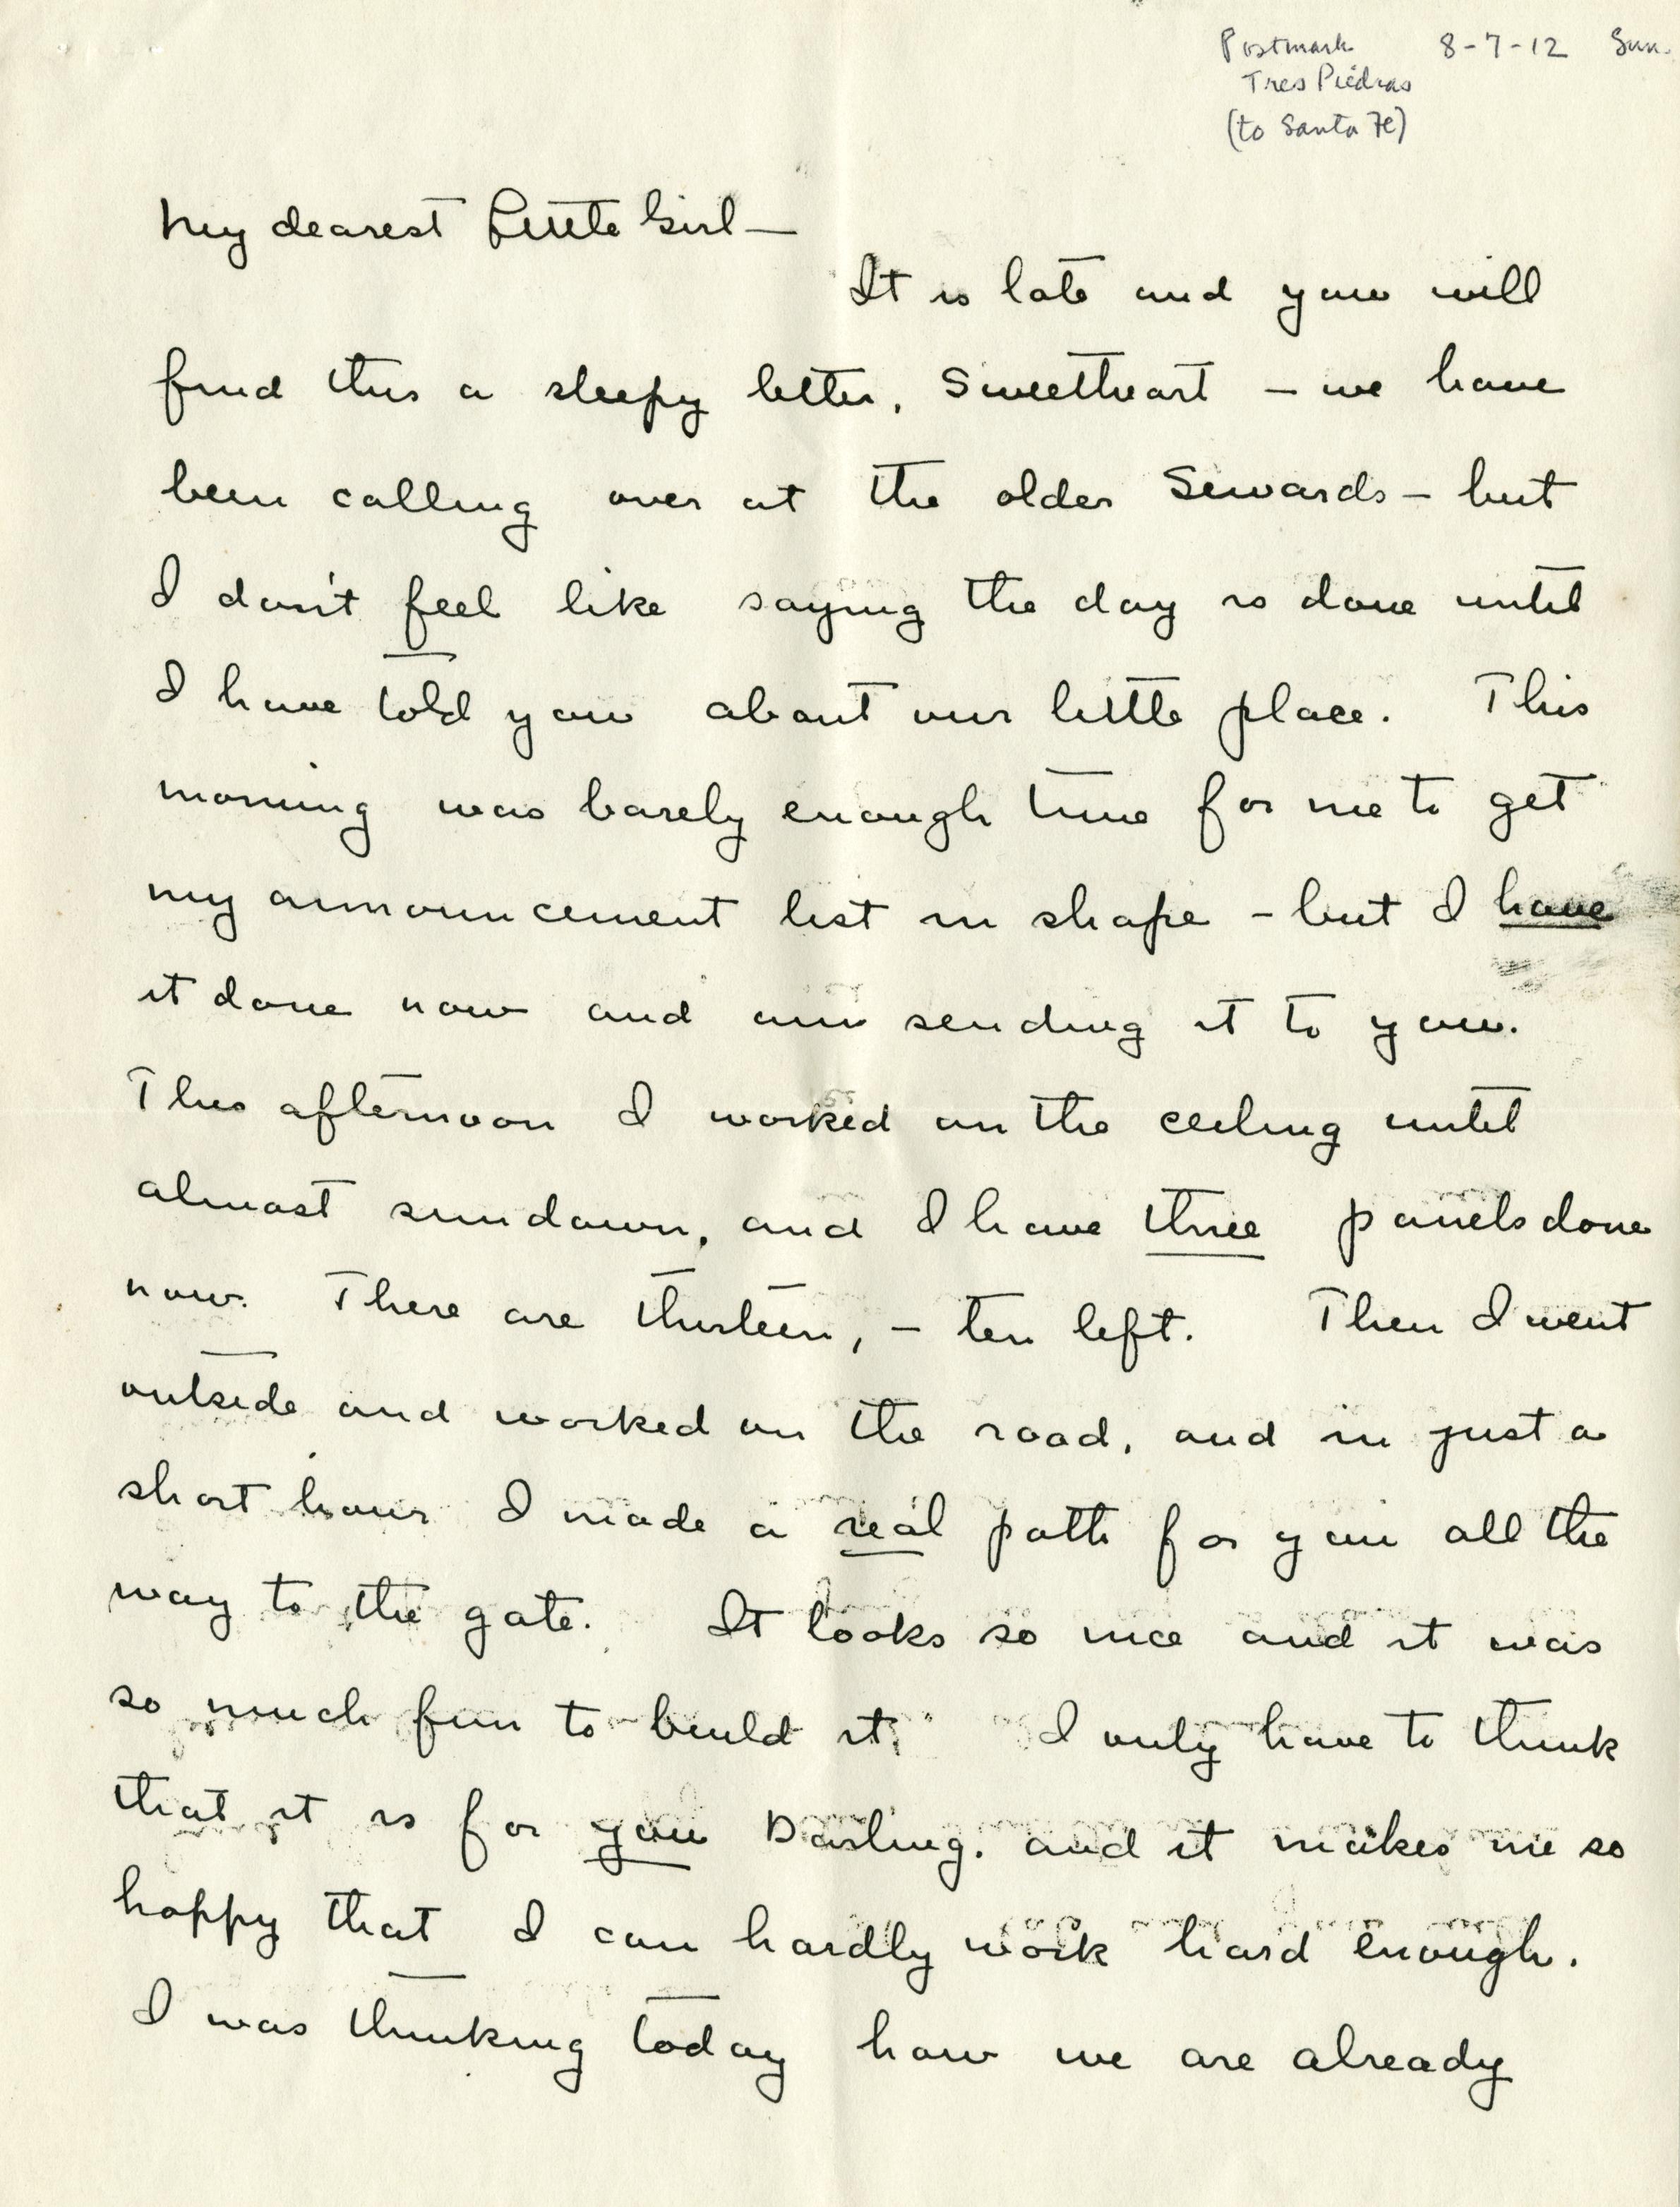 Postmark 8-7-12 Sun.
Tres Piedras
(to Santa Fe)
My dearest Little Girl —
It is late and you will
find this a sleepy letter, Sweetheart — we have
been calling over at the older Sewards — but
I don't feel like saying the day is done until
I have told you about our little place. This
morning was barely enough time for me to get
my announcement list in shape — but I have
it done now and am sending it to you.
This afternoon I worked on the ceiling until
almost sundown, and I have three panels done
now. There are thirteen, — ten left. Then I went
outside and worked on the road, and in just a
short hour I made a real path for you all the
way to the gate. It looks so nice and it was
so much fun to build it. I only have to think
that it is for you Darling. and it makes me so
happy that I can hardly work hard enough.
I was thinking today how we are already